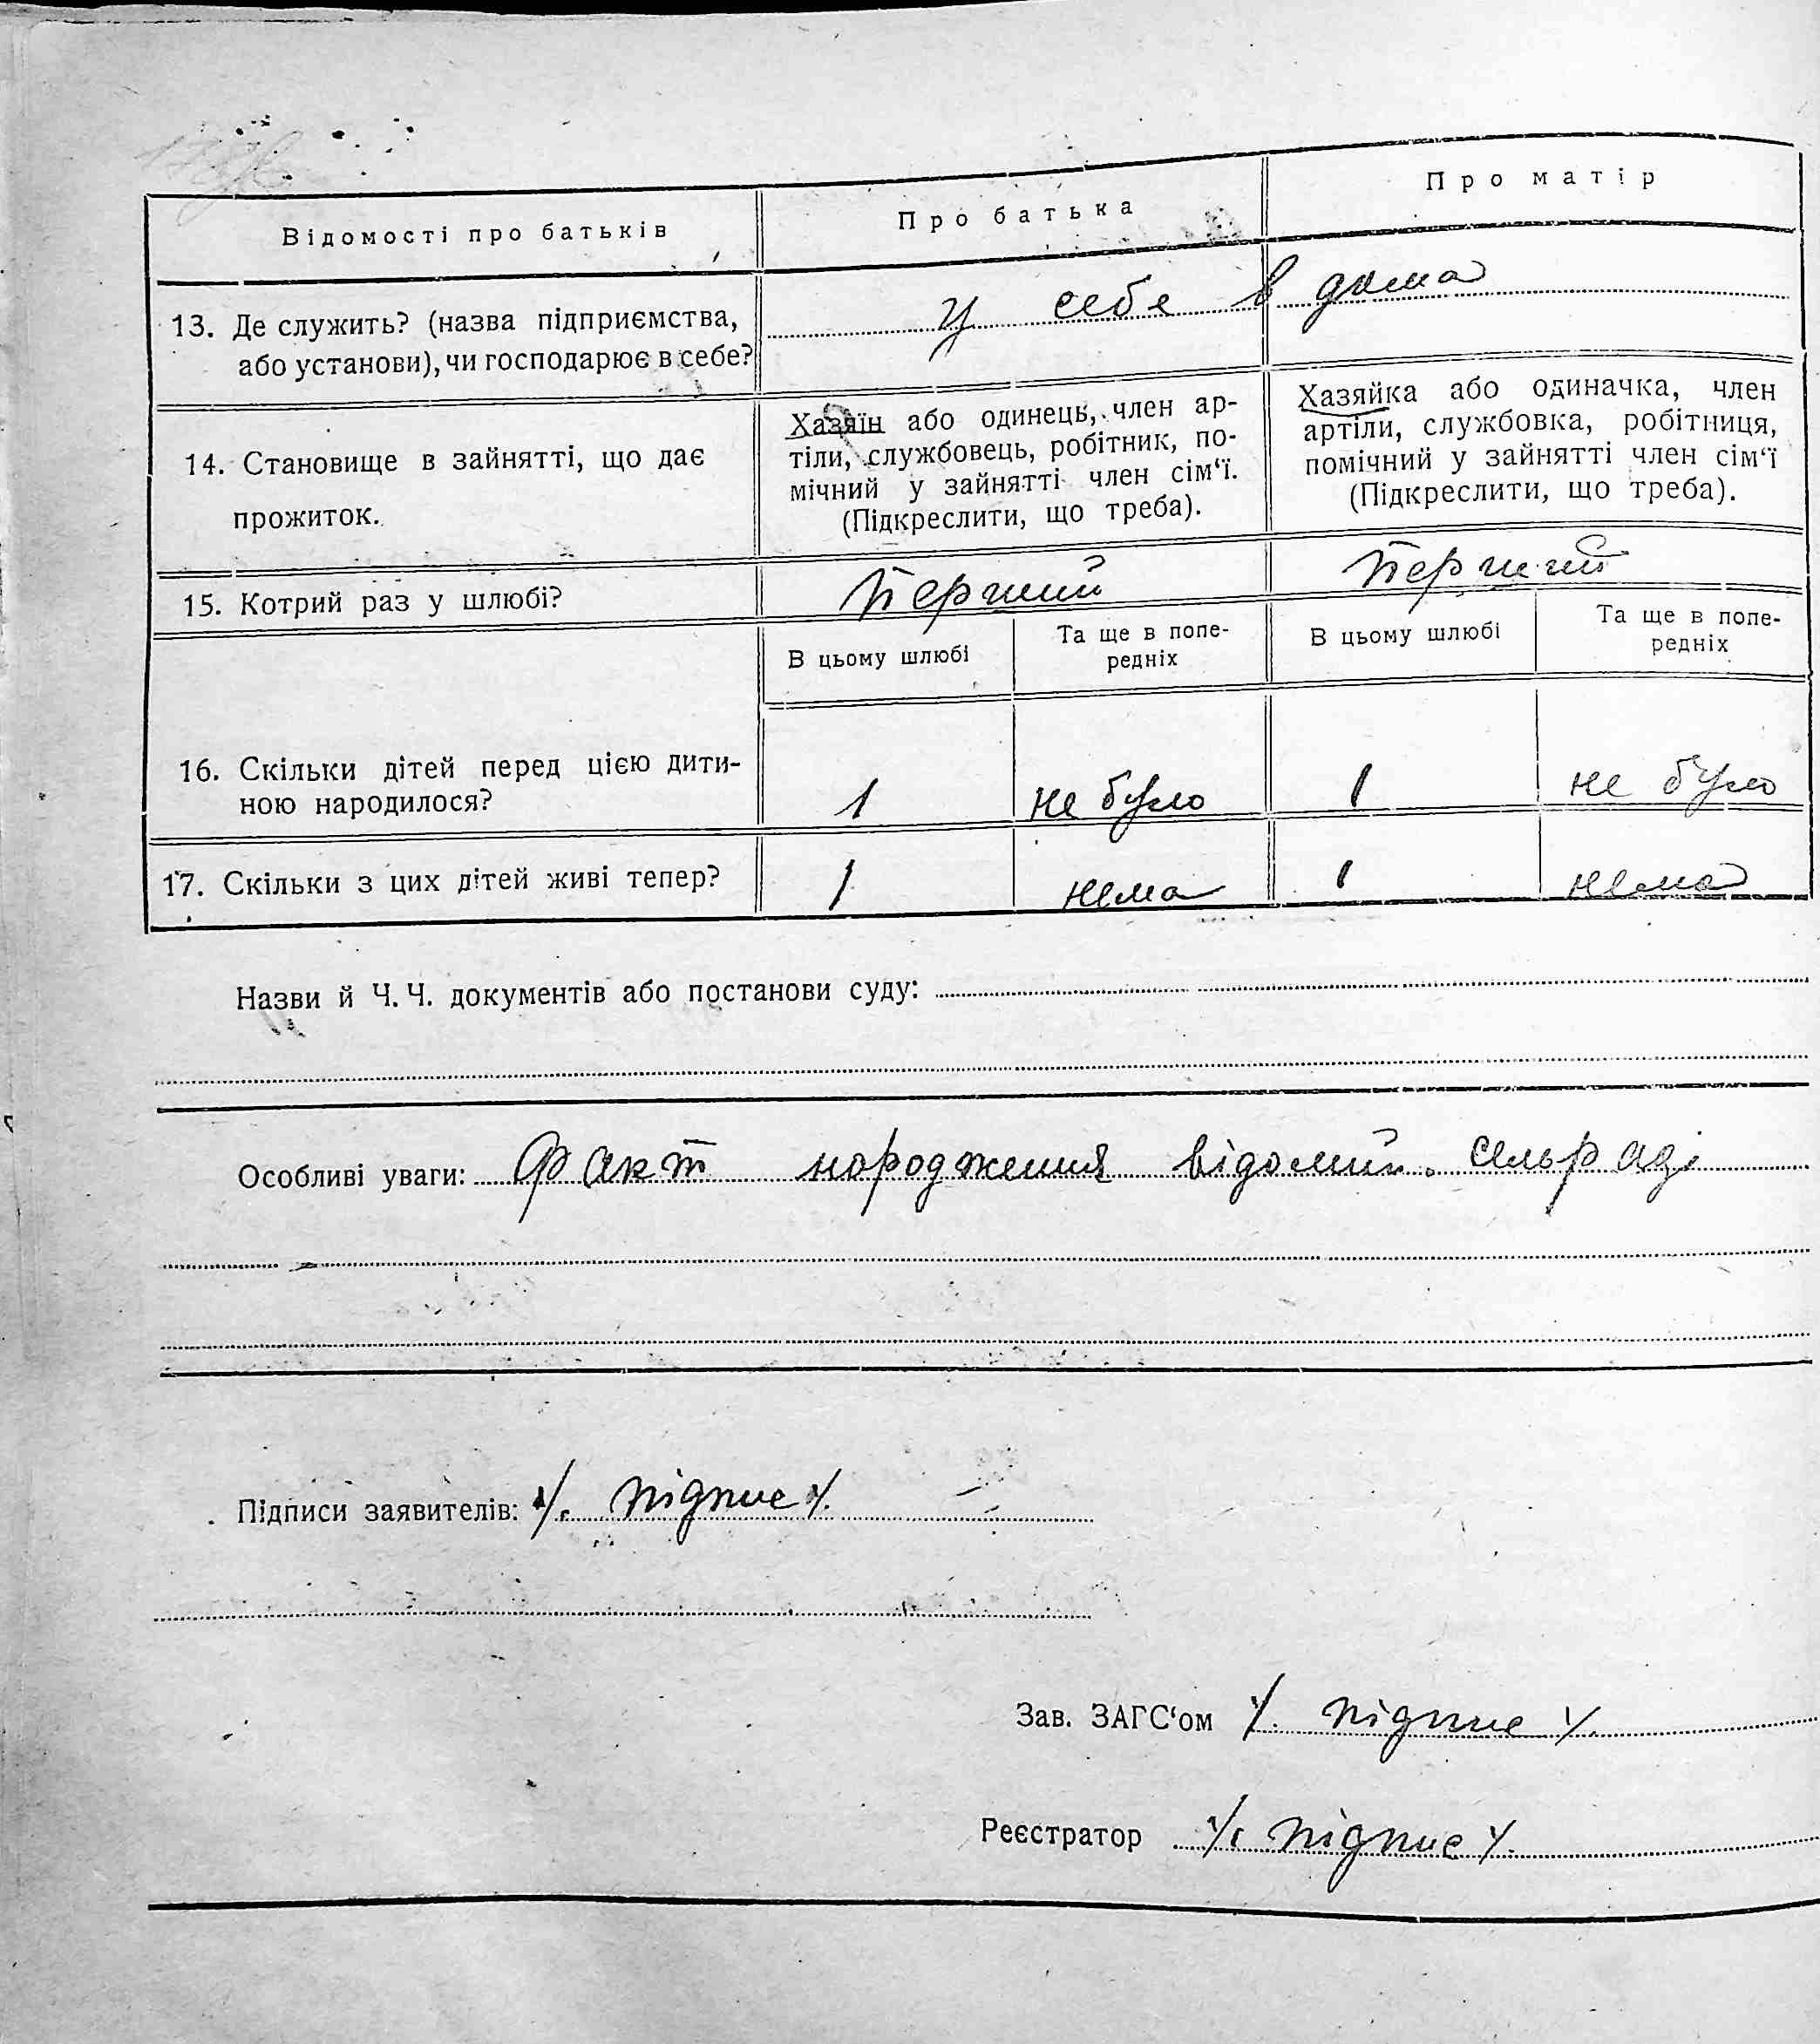 Відомості про батьків
Про батька
Про матір
13. Де служить? (назва підприємства,
або установи), чи господарює в себе?
у себе в дома
14. Становище в зайнятті, що дає
прожиток.
Хазяїн або одинець, член ар-
тіли, службовець, робітник, по-
мічний у зайнятті член сім‘ї.
(Підкреслити, що треба).
Хазяйка або одиначка, член
артіли, службовка, робітниця,
помічний у зайнятті член сім‘ї
(Підкреслити, що треба).
15. Котрий раз у шлюбі?
Перший
Перший
В цьому шлюбі
Та ще в попе-
редніх
В цьому шлюбі
Та ще в попе-
редніх
16. Скільки дітей перед цією дити-
ною народилося?
1
не було
1
не було
17. Скільки з цих дітей живі тепер?
1
нема
1
нема
Назви й Ч. Ч. документів або постанови суду:
Особливі уваги: Факт народження відомий. сельраді
Підписи заявителів: /. підпис /.
Зав. ЗАГС‘ом /. підпис /.
Реєстратор /. підпис /.